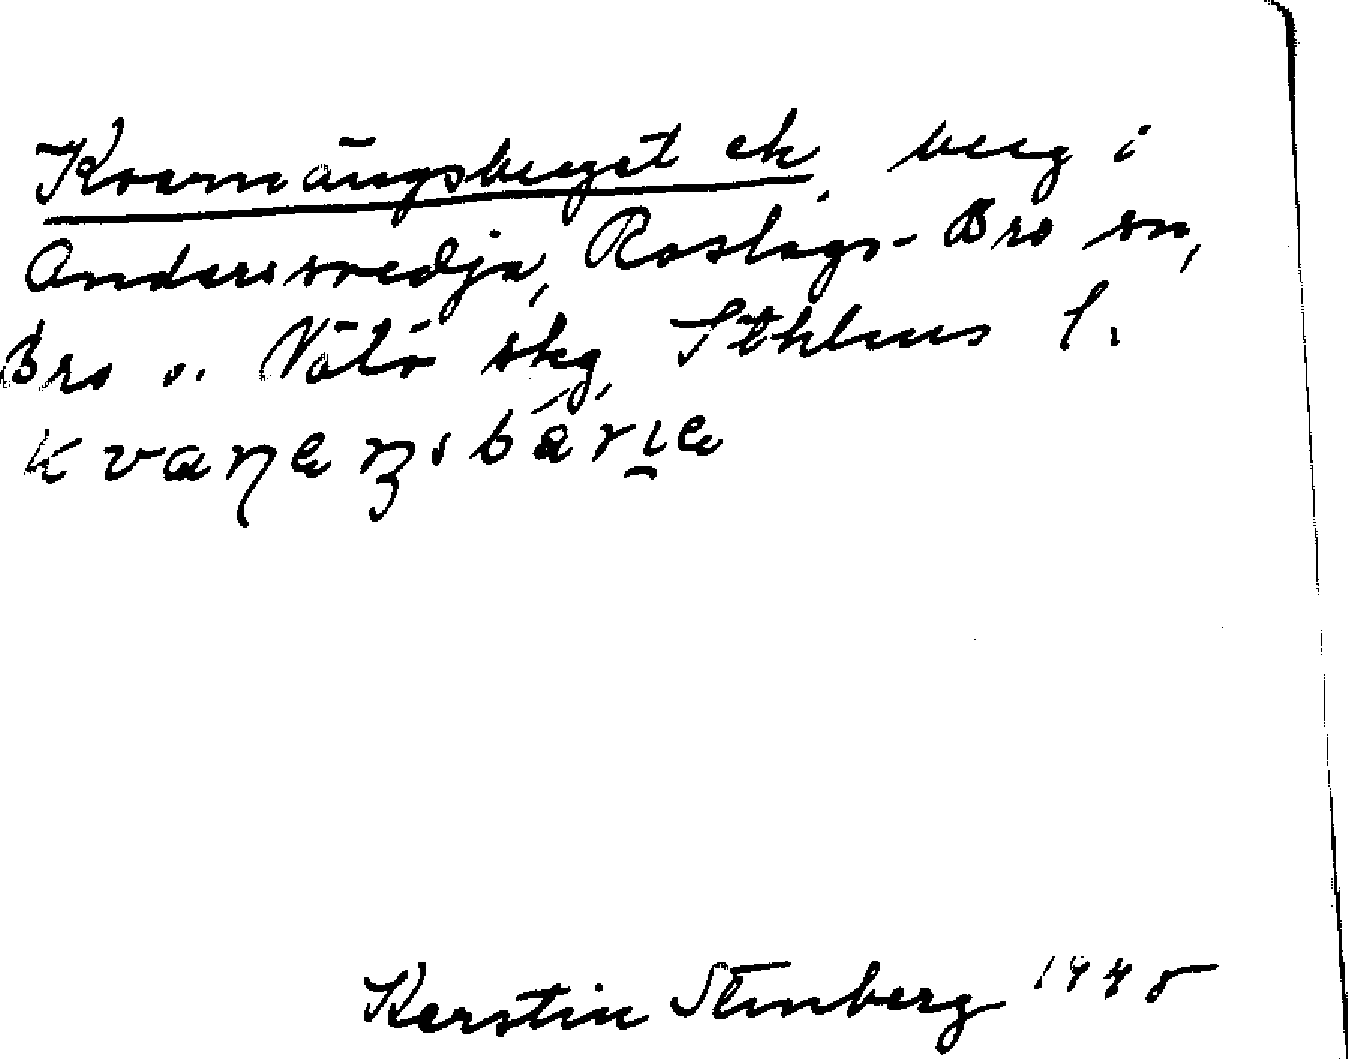 Kvarnängsberget ek, berg i
Andersvedja, Roslags-Bro sn,
Bro o. Vätö skg, Sthlms l.
Kerstin Stenberg 1945